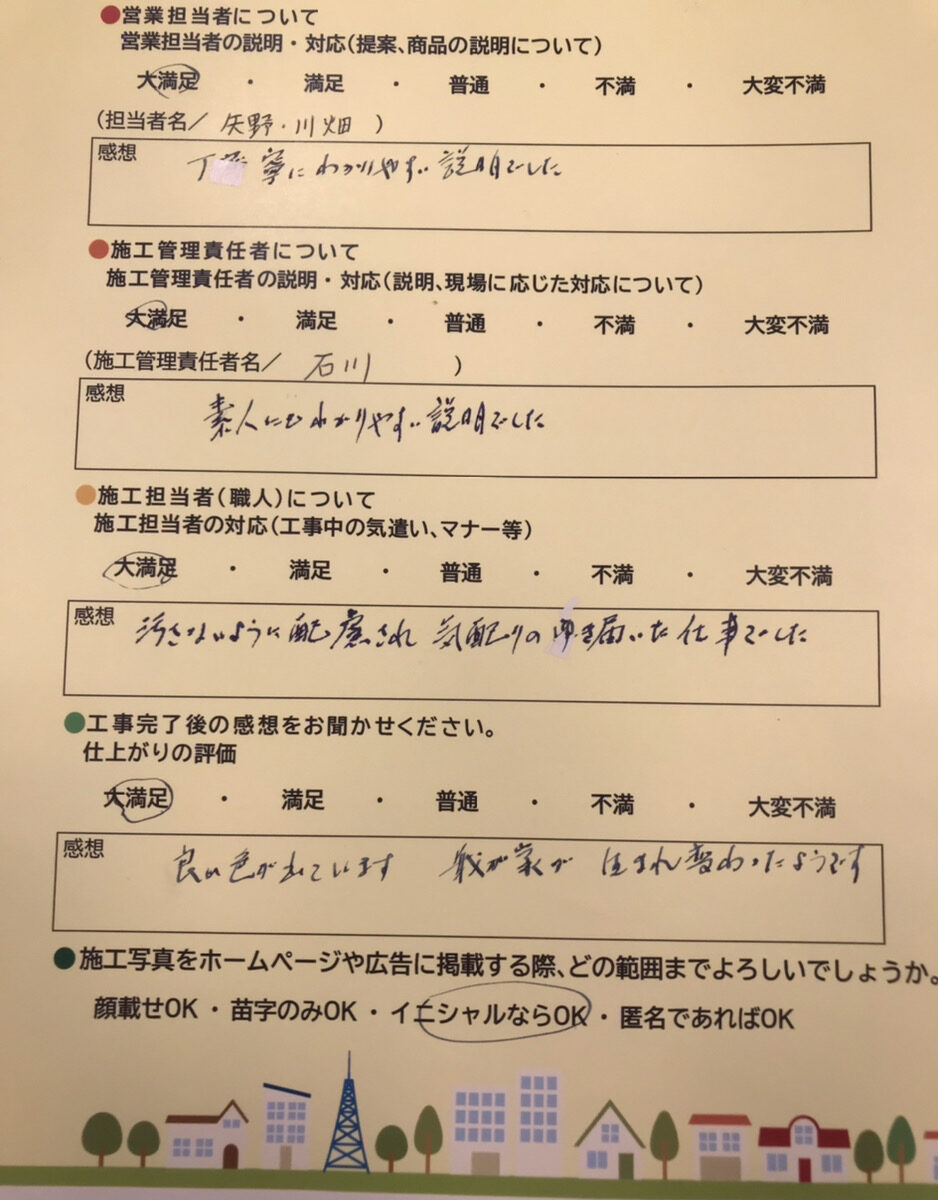 ●営業担当者について
営業担当者の説明・対応(提案、商品の説明について)
大満足 ・ 満足 ・ 普通 ・ 不満 ・ 大変不満
(担当者名／ 矢野・川畑 )
感想
丁寧にわかりやすい説明でした
●施工管理責任者について
施工管理責任者の説明・対応(説明、現場に応じた対応について)
大満足 ・ 満足 ・ 普通 ・ 不満 ・ 大変不満
(施工管理責任者名／ 石川 )
感想
素人にもわかりやすい説明でした
●施工担当者(職人)について
施工担当者の対応(工事中の気遣い、マナー等)
大満足 ・ 満足 ・ 普通 ・ 不満 ・ 大変不満
感想
汚さないように配慮され 気配りの行き届いた仕事でした
●工事完了後の感想をお聞かせください。
仕上がりの評価
大満足 ・ 満足 ・ 普通 ・ 不満 ・ 大変不満
感想
良い色がでています 我が家が 生まれ変わったようです
●施工写真をホームページや広告に掲載する際、どの範囲までよろしいでしょうか。
顔載せOK・苗字のみOK・イニシャルならOK・匿名であればOK